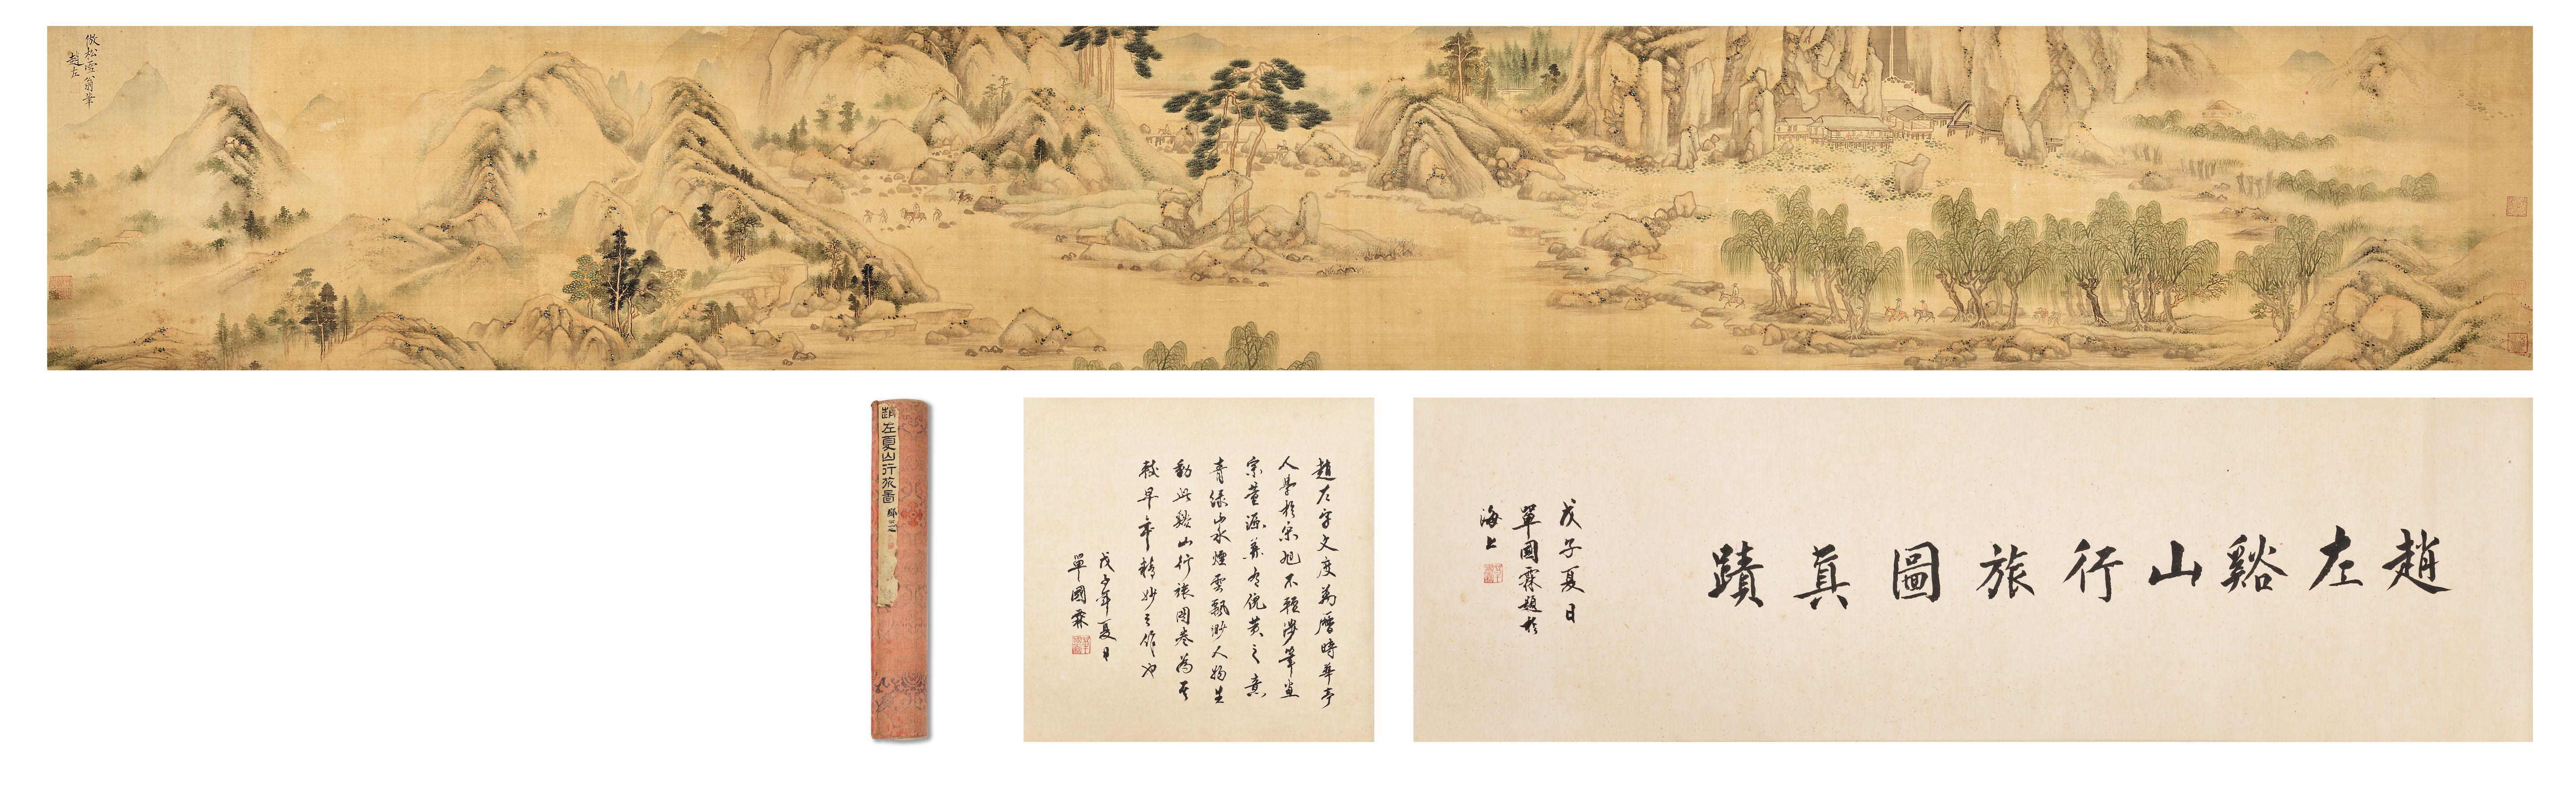 倣松雪翁筆
趙左
趙左夏山行旅圖
趙左字文度萬曆時華亭
人學於宋旭不輕涉筆畫
宗董源兼有倪黃之意
青綠山水煙雲飄渺人物生
動此谿山行旅圖卷為其
較早年精妙之作也
戊子年夏日
單國霖
趙左谿山行旅圖真蹟
戊子夏日
單國霖題於
海上